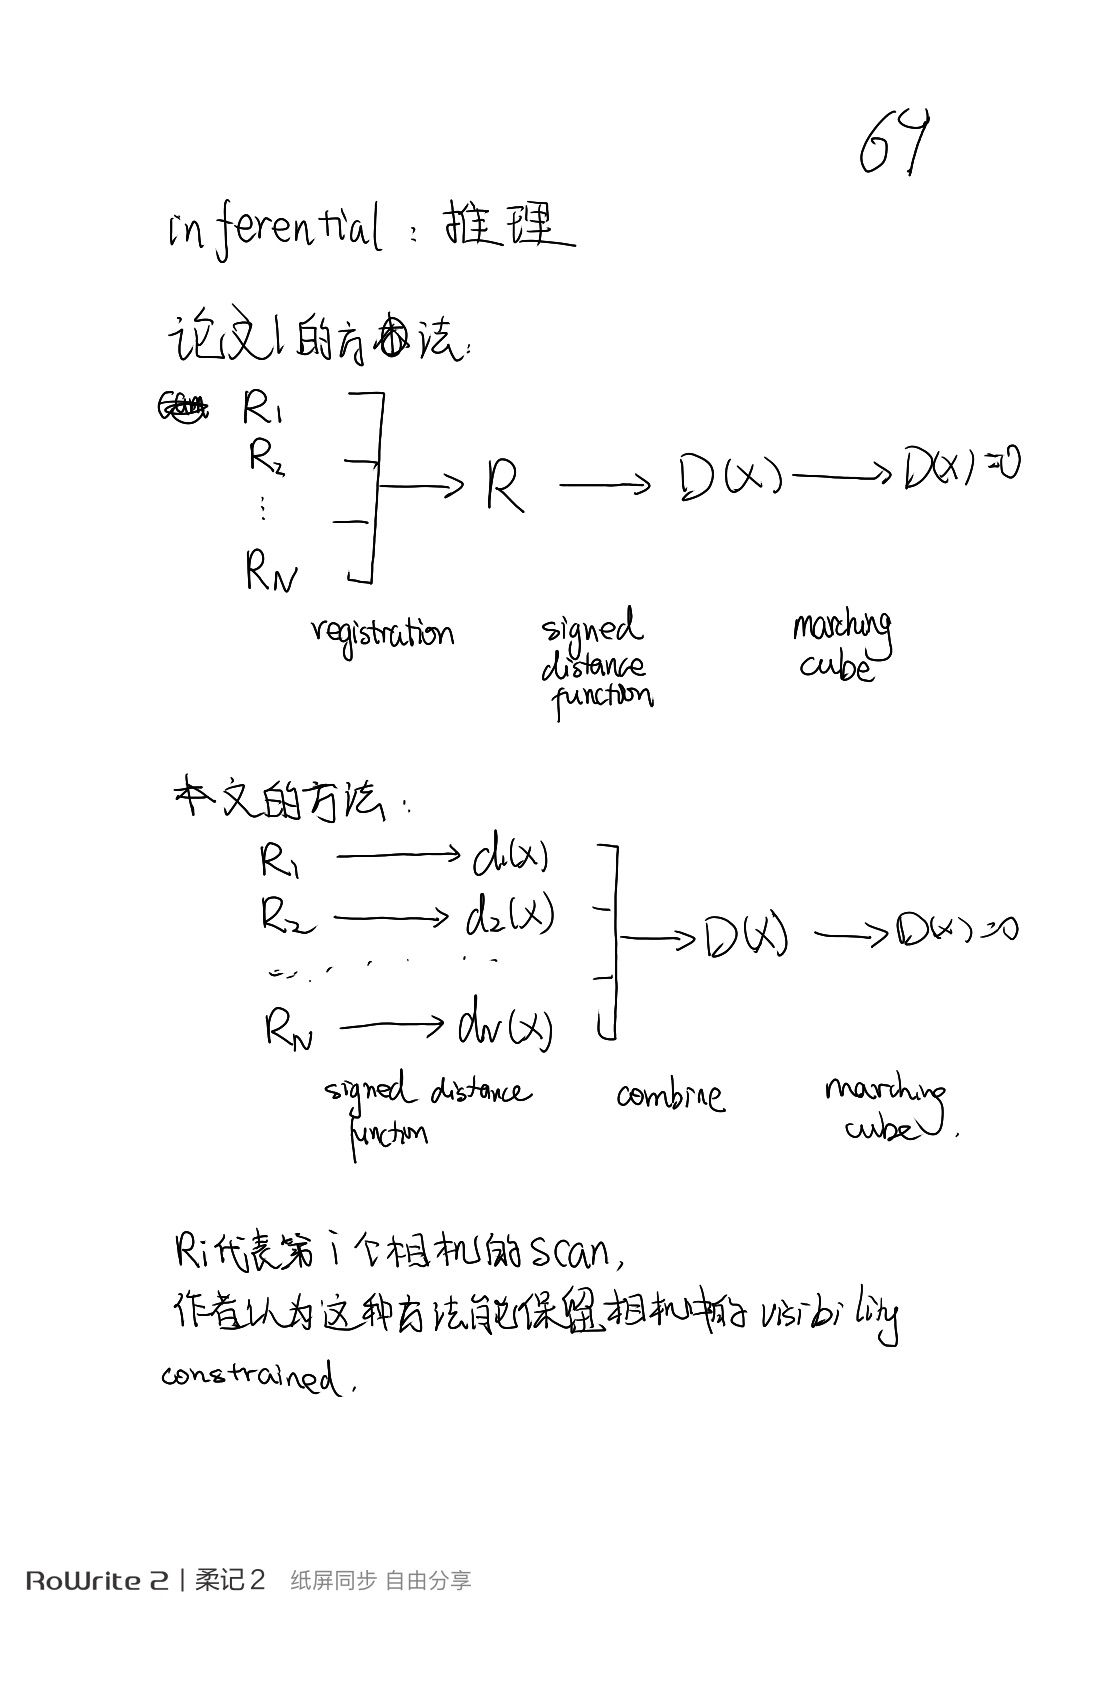 64
inferential：推理
论文1的方法：
R1
R2
⋮
RN
→ R → D(x) → D(x)=0
registration
signed distance function
marching cube
本文的方法：
R1 → d1(x)
R2 → d2(x)
......
RN → dN(x)
→ D(x) → D(x)=0
signed distance function
combine
marching cube.
Ri代表第i个相机的scan,
作者认为这种方法能保留相机中的visibility
constrained.
RoWrite 2 | 柔记2 纸屏同步 自由分享